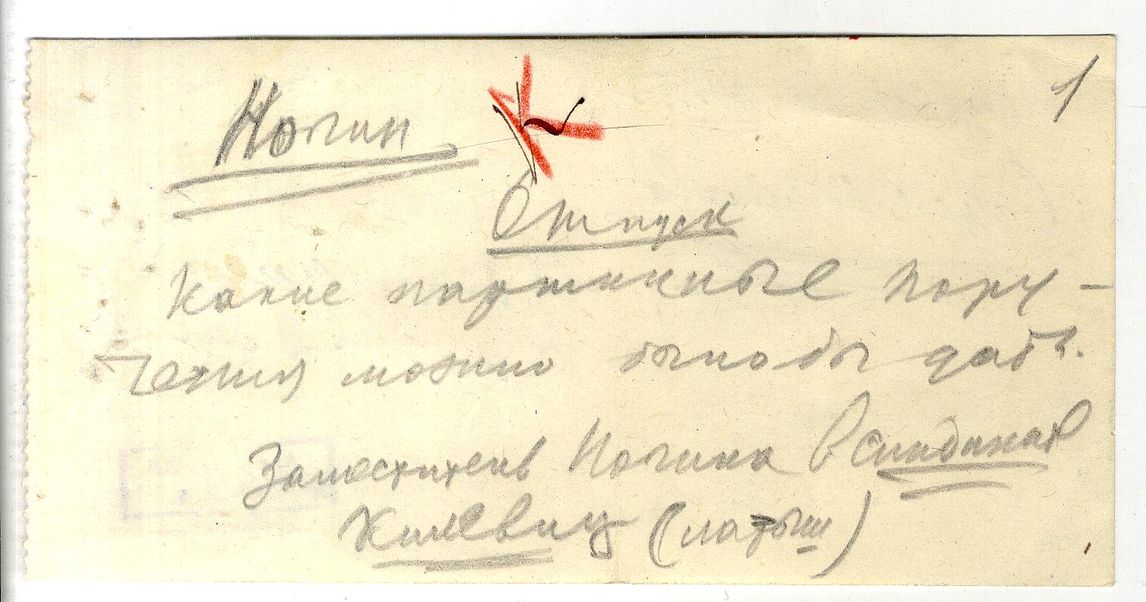 Ногин
1
Отпуск
Какие партийные пору-
чения можно было бы дать.
Заместитель Ногина в синдикат
(латыш)